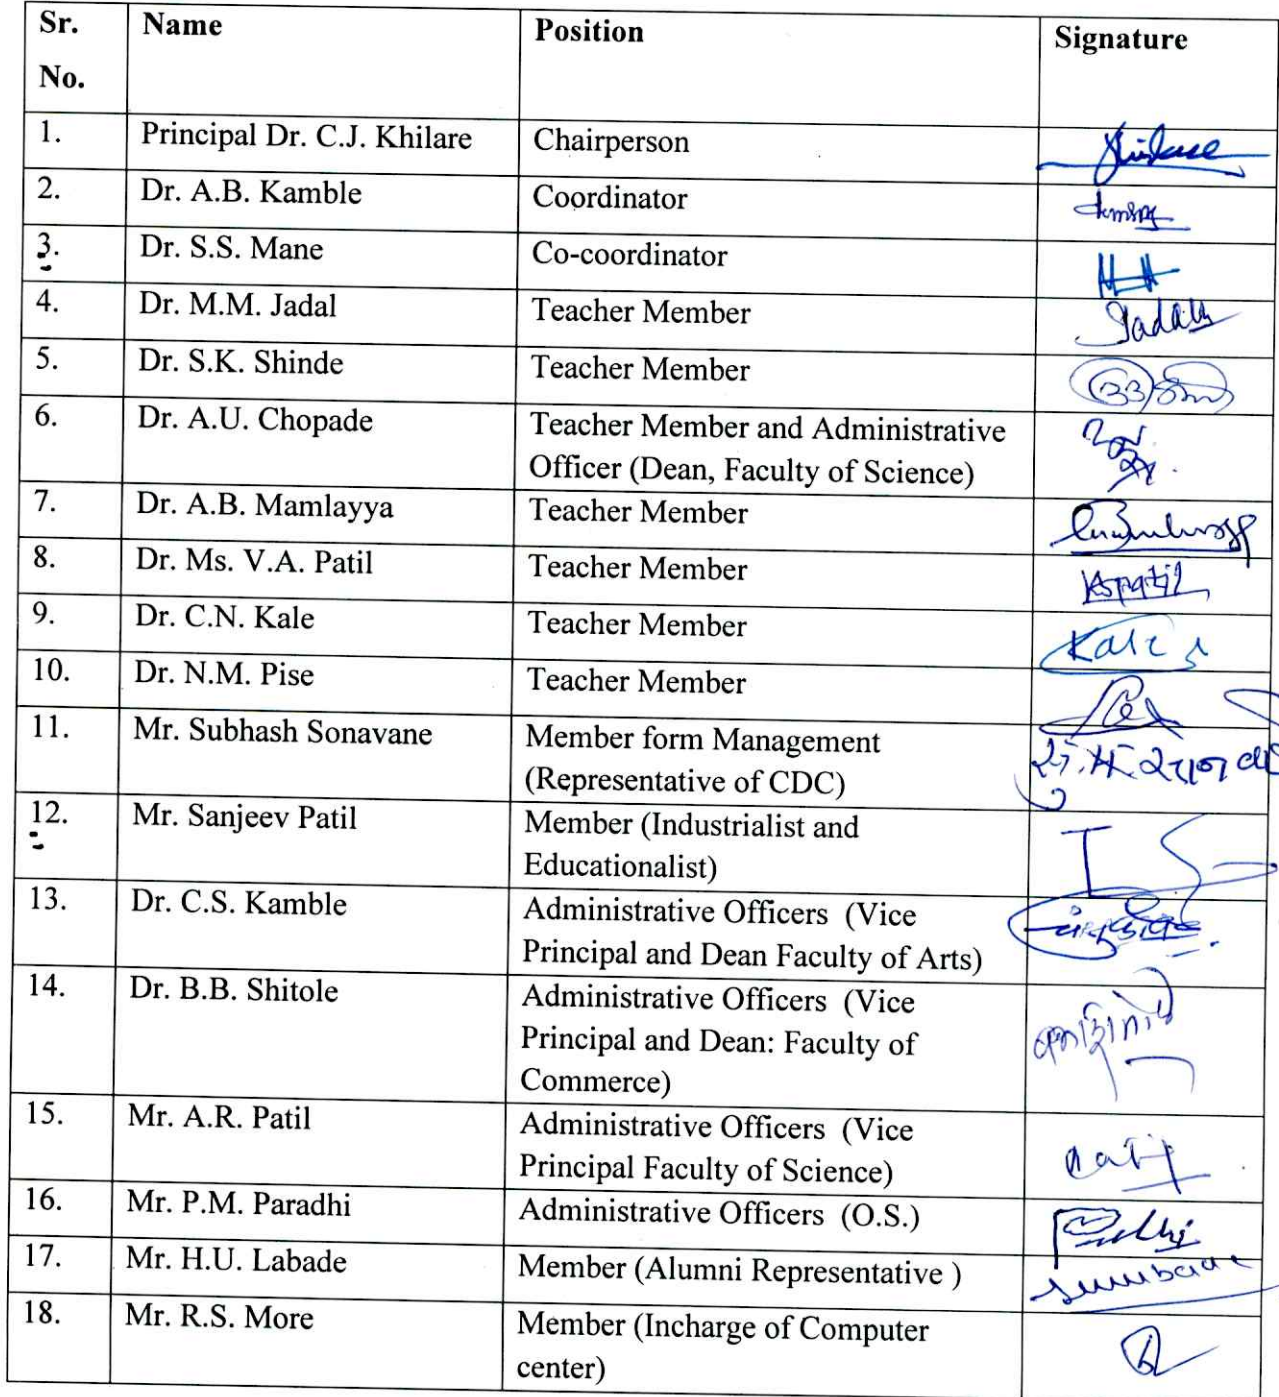 Sr. No. Name Position Signature
1. Principal Dr. C.J. Khilare Chairperson
2. Dr. A.B. Kamble Coordinator
3. Dr. S.S. Mane Co-coordinator
4. Dr. M.M. Jadal Teacher Member
5. Dr. S.K. Shinde Teacher Member
6. Dr. A.U. Chopade Teacher Member and Administrative
Officer (Dean, Faculty of Science)
7. Dr. A.B. Mamlayya Teacher Member
8. Dr. Ms. V.A. Patil Teacher Member
9. Dr. C.N. Kale Teacher Member
10. Dr. N.M. Pise Teacher Member
11. Mr. Subhash Sonavane Member form Management
(Representative of CDC)
12. Mr. Sanjeev Patil Member (Industrialist and
Educationalist)
13. Dr. C.S. Kamble Administrative Officers (Vice
Principal and Dean Faculty of Arts)
14. Dr. B.B. Shitole Administrative Officers (Vice
Principal and Dean: Faculty of
Commerce)
15. Mr. A.R. Patil Administrative Officers (Vice
Principal Faculty of Science)
16. Mr. P.M. Paradhi Administrative Officers (O.S.)
17. Mr. H.U. Labade Member (Alumni Representative )
18. Mr. R.S. More Member (Incharge of Computer
center)